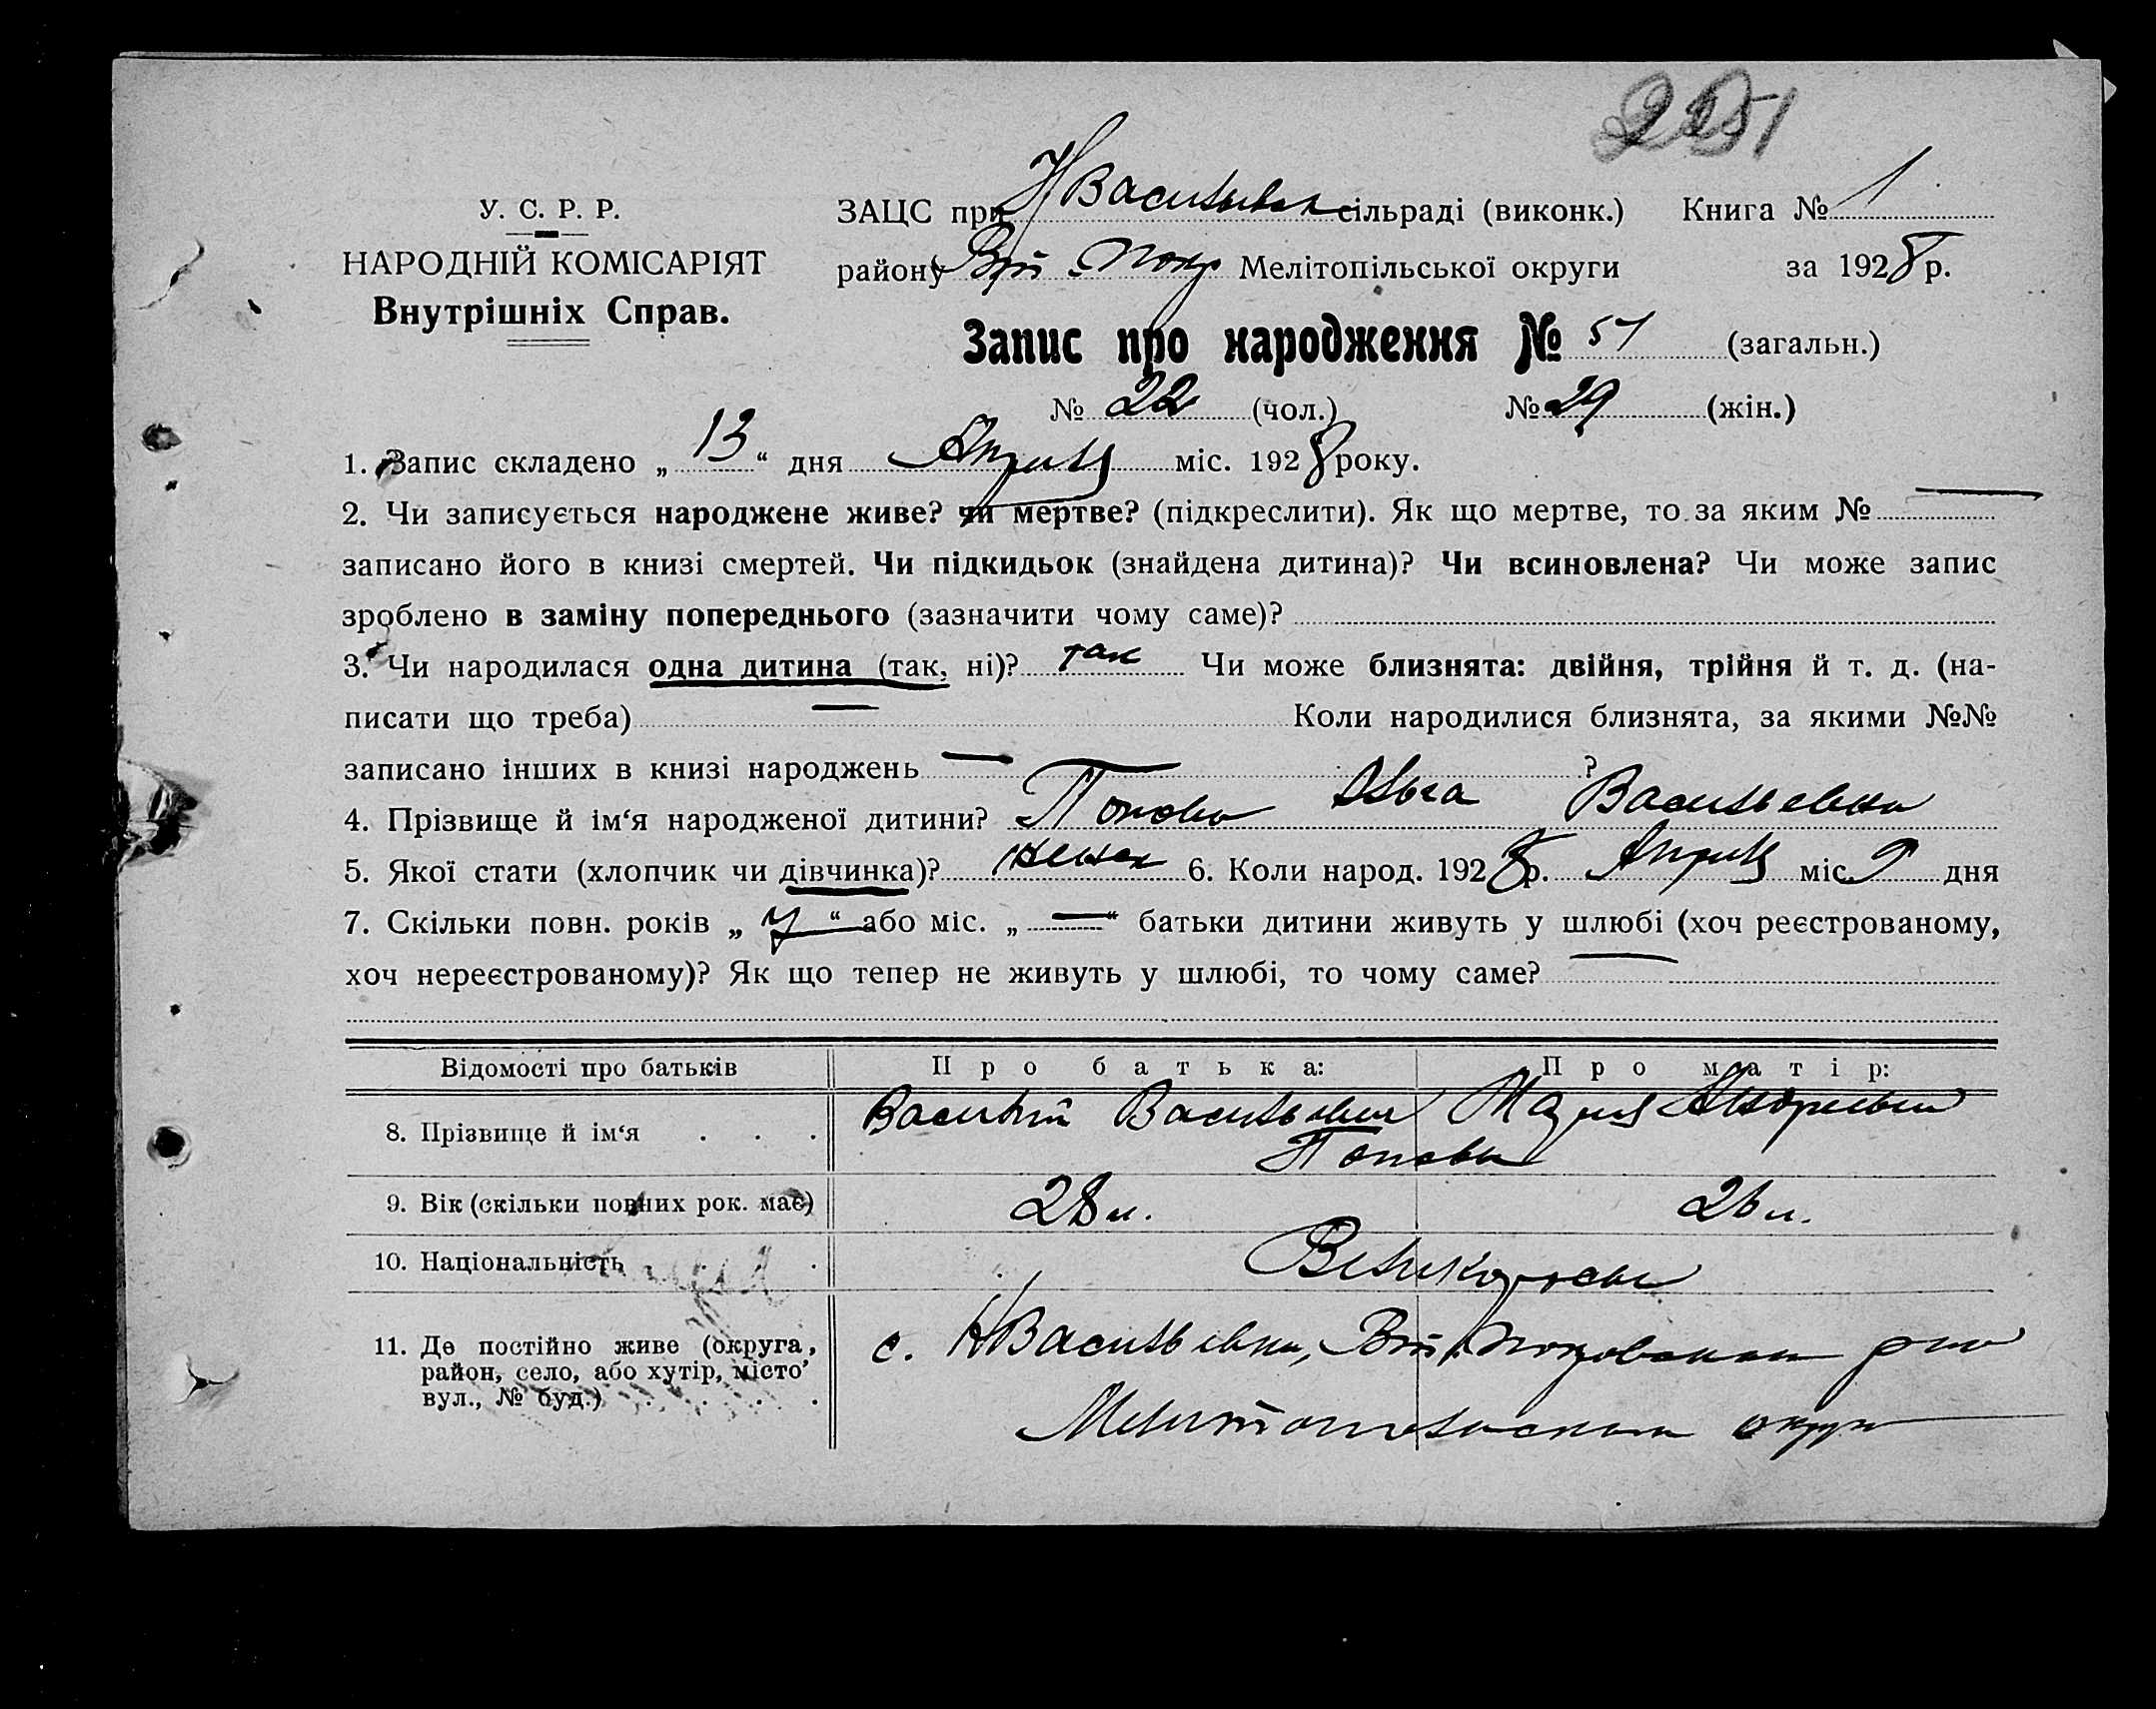 251
У. С. Р. Р.
НАРОДНІЙ КОМІСАРІЯТ
Внутрішніх Справ.
ЗАЦС при Н Васильевск сільраді (виконк.) Книга № 1
району Вт Покр Мелітопільської округи за 1928 р.
Запис про народження № 51 (загальн.)
№ 22 (чол.) № 29 (жін.)
1. Запис складено „13“ дня Апреля міс. 1928 року.
2. Чи записується народжене живе? чи мертве? (підкреслити). Як що мертве, то за яким № —
записано його в книзі смертей. Чи підкидьок (знайдена дитина)? Чи всиновлена? Чи може запис
зроблено в заміну попереднього (зазначити чому саме)?
3. Чи народилася одна дитина (так, ні)? так Чи може близнята: двійня, трійня й т. д. (на-
писати що треба) — Коли народилися близнята, за якими №№
записано інших в книзі народжень — ?
4. Прізвище й ім‘я народженої дитини? Попова Ольга Васильевна
5. Якої стати (хлопчик чи дівчинка)? женск 6. Коли народ. 1928 р. Апреля міс. 9 дня
7. Скільки повн. років „7“ або міс. „—“ батьки дитини живуть у шлюбі (хоч реєстрованому,
хоч нереєстрованому)? Як що тепер не живуть у шлюбі, то чому саме? —
Відомості про батьків Про батька: Про матір:
8. Прізвище й ім‘я . . . Василий Васильевич Мария Андреевна
Поповы
9. Вік (скільки повних рок. має) 28 л. 26 л.
10. Національність . . . Великороссы
11. Де постійно живе (округа, район, село, або хутір, місто’ вул., № буд.) . . . с. Н Васильевка, Вт Покровском р-на
Мелитопольском округа